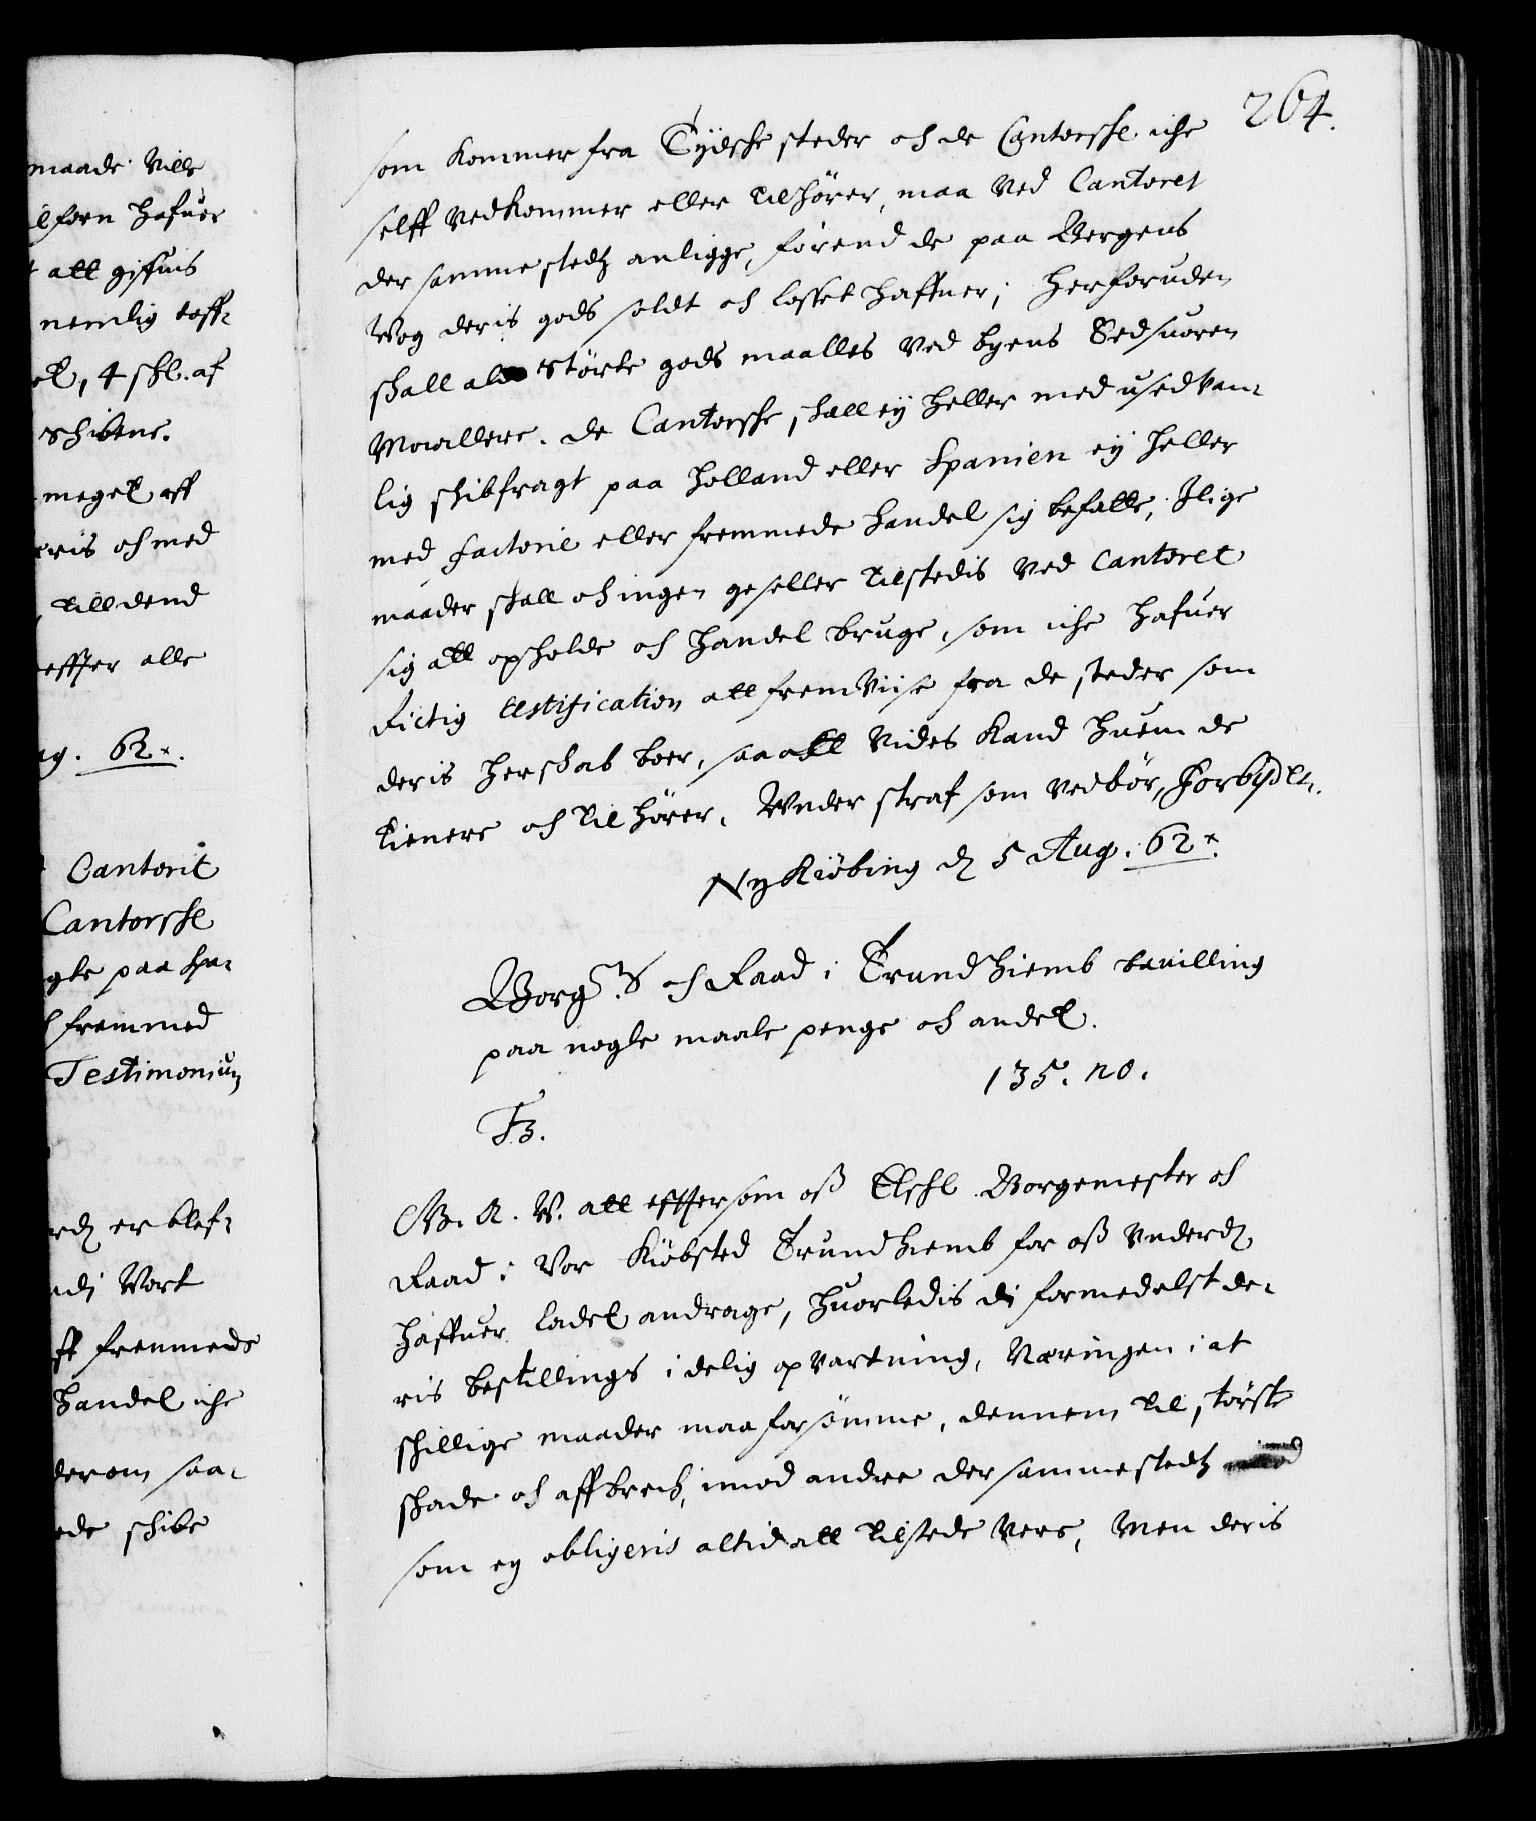 maade Ville
lforn hafuer
att gifuis
nemlig toff-
et, 4 skl. af
schibene.
meget aff
eris och med
, till dend
effter alle
ug. 62.
Cantorit
Cantorsche
gte paa Spa-
fremmed
Testimonium
er bleff-
Vort
ff fremmede
handel iche
derom saa-
ede schibe
264.
som kommer fra Tydsche steder och de Cantorsche iche
selff vedkommer eller tilhörer, maa ved Cantoret
der sammestedtz anligge, förend de paa Bergens
Vog deris gods soldt och losset haffuer; herforuden
skall alt störte gods maalles ved byens Edsuoren
Maallere. de Cantorsche skall ey heller med usedvan-
lig schibfragt paa Holland eller Spanien ey heller
med factorie eller fremmede handel sig befatte, Ilige
maader skall och ingen geseller tilstedis ved Cantoret
sig att opholde och handel bruge, som iche hafuer
Rictig testification att fremviise fra de steder som
deris herskab boer, saa att vides kand huem de
tienere och tilhörer, Vnder straf som vedbör, Forbydt.
Nykiöbing d 5 Aug. 62.
Borg. och Raad i Trundhiemb bevilling
paa nogle maale penge och andet.
135. no.
F3.
G. A. V. att effterson oss Elschl. Borgemester och
Raad i Vor Kiöbsted Trundhiemb for oss Vnderd
haffuer ladet andrage, huorledis di formedelst de-
ris bestillings idelig opvartning, Næringen i at
schillige maader maa forsömme, dennem til störste
skade och affbreck, imod andre der sammestedtz
som ey obligeris altid att tilstede vere, Men deris